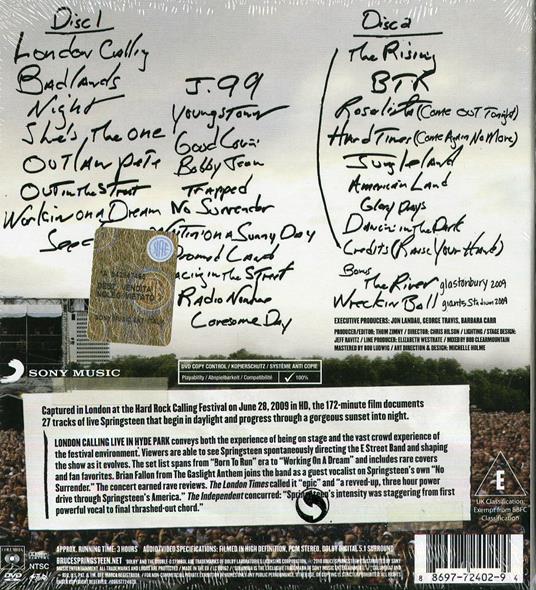 Disc 1
London Calling
Badlands
Night
She's The One
Outlaw Pete
Out in the Street
Workin on a Dream
J. 99
Youngstown
Good Lovin
Bobby Jean
Trapped
No Surrender
on a Sunny Day
Land
acing in the Street
Radio Nowhere
Lonesome Day
Disc 2
The Rising
BTR
Rosalita (Come Out Tonight)
Hard Times (Come Again No More)
Jungleland
American Land
Glory Days
Dancing in the Dark
Credits (Raise Your Hand)
Bonus
The River glastonbury 2009
Wreckin Ball giants stadium 2009
EXECUTIVE PRODUCERS: JON LANDAU, GEORGE TRAVIS, BARBARA CARR
PRODUCER/EDITOR: THOM ZIMNY / DIRECTOR: CHRIS HILSON / LIGHTING / STAGE DESIGN:
JEFF RAVITZ / LINE PRODUCER: ELIZABETH WESTRATE / MIXED BY BOB CLEARMOUNTAIN
MASTERED BY BOB LUDWIG / ART DIRECTION & DESIGN: MICHELLE HOLME
SIAE
SONY MUSIC
DVD COPY CONTROL / KOPIERSCHUTZ / SYSTÈME ANTI COPIE
Playability / Abspielbarkeit / Compatibilité
100%
Captured in London at the Hard Rock Calling Festival on June 28, 2009 in HD, the 172-minute film documents
27 tracks of live Springsteen that begin in daylight and progress through a gorgeous sunset into night.
LONDON CALLING LIVE IN HYDE PARK conveys both the experience of being on stage and the vast crowd experience of
the festival environment. Viewers are able to see Springsteen spontaneously directing the E Street Band and shaping
the show as it evolves. The set list spans from "Born To Run" era to "Working On A Dream" and includes rare covers
and fan favorites. Brian Fallon from The Gaslight Anthem joins the band as a guest vocalist on Springsteen's own "No
Surrender." The concert earned rave reviews. The London Times called it "epic" and "a revved-up, three hour power
drive through Springsteen's America." The Independent concurred: "Springsteen's intensity was staggering from first
powerful vocal to final thrashed-out chord."
E
UK Classification:
Exempt from BBFC
Classification
COLUMBIA
DVD
NTSC
APPROX. RUNNING TIME: 3 HOURS AUDIO/VIDEO SPECIFICATIONS: FILMED IN HIGH DEFINITION, PCM STEREO, DOLBY DIGITAL 5.1 SURROUND
BRUCESPRINGSTEEN.NET
8 8697-72402-9 4